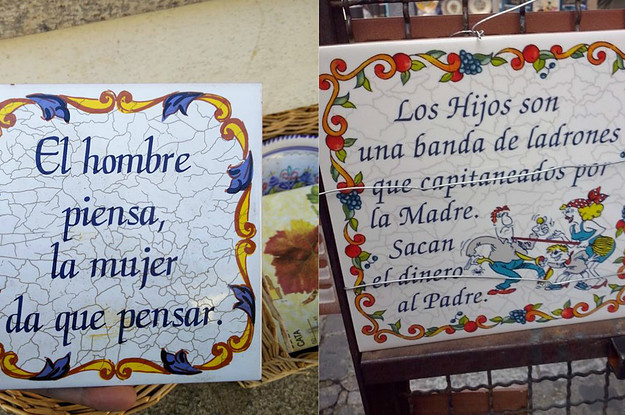 El hombre
piensa,
la mujer
da que pensar.
Los Hijos son
una banda de ladrones
que capitaneados por
la Madre.
Sacan
el dinero
al Padre.